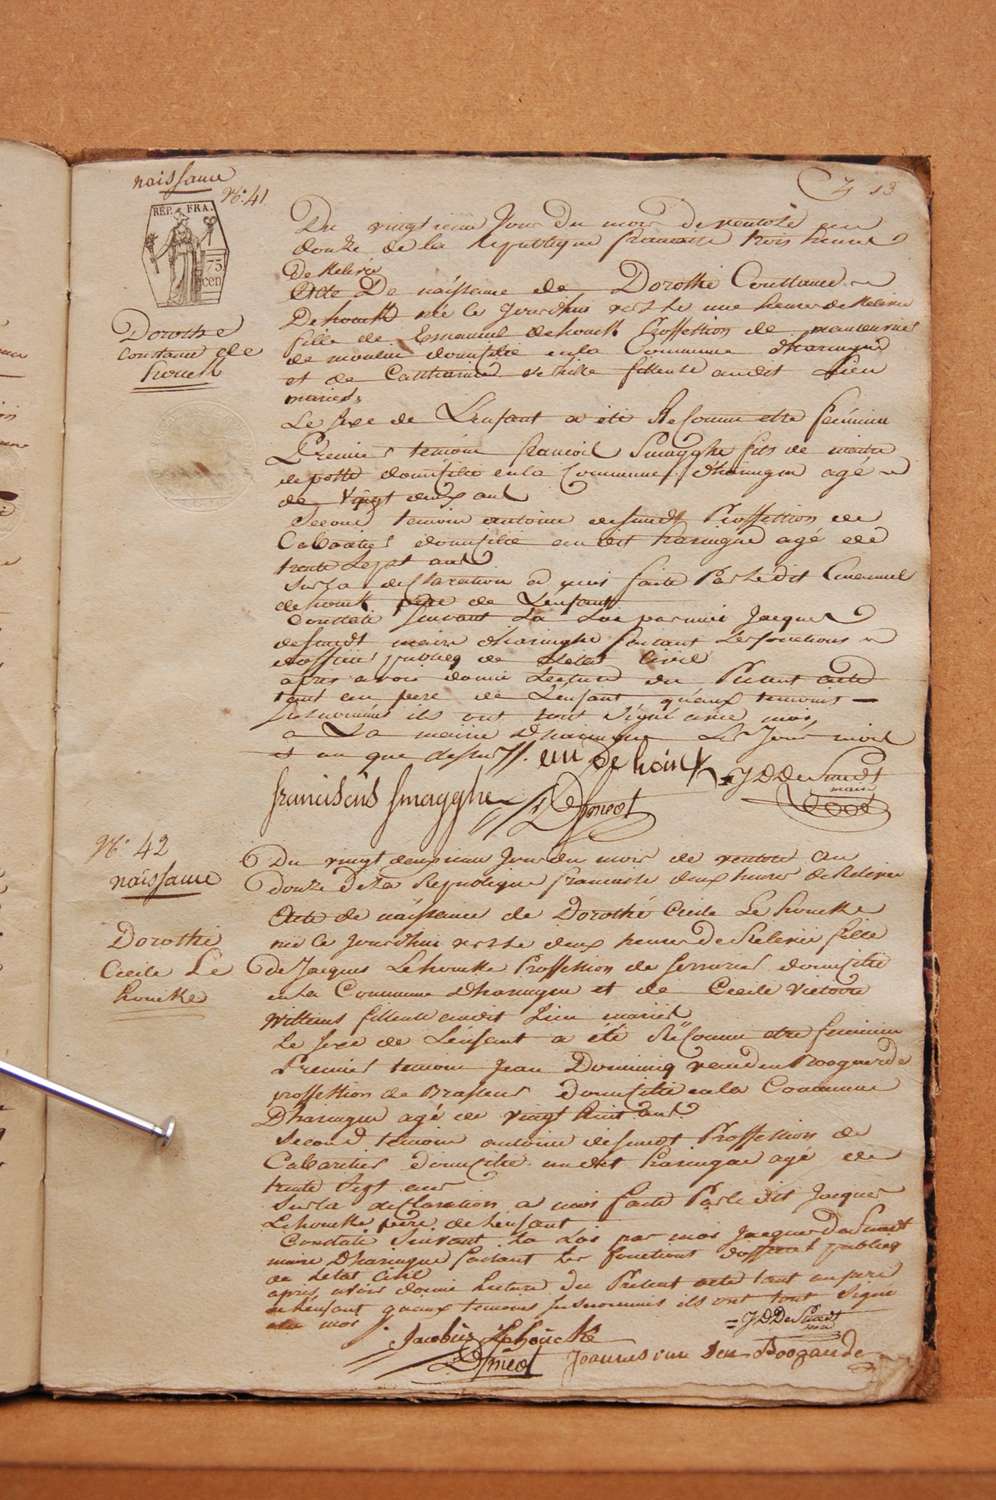 naissance
N°. 41
13
REP. FRA.
75
cen
Dorothe
Constance de
houck
Du vingtieme Jour du mois de ventose an
douze de la republique francaise trois heures
De Relevée
Acte De naissance de Dorothé Constance
Dehouck née le Jourdhui vers le une heure de Relevée
fille de Emanuel dehouck Proffession de
de moulin domicilié en la Commune dharingue
et de Catharine fileuse au dit Lieu
mariés,
Le sexe de Lenfant a été Reconnu etre feminin
Premier temoin francois Smagghe fils de maitre
de poste domicilié en la Commune dharingue agé
de vingt deux ans
Second temoin antoine desmedt Proffession de
Cabartier domicilié au dit haringue agé de
trente sept ans
Sur la declaration a nous faite Par Le dit Emanuel
dehouck père de Lenfant
Constaté suivant La Loi par moi Jacques
desmedt maire dharinghe faisant les fonctions
dofficier publicq de Letat Civil
apres avoir donné Lecture du Present acte
tant au pere de Lenfant quaux temoins
susnommés ils ont tout signé avec moi
a La mairie dharingue Les Jour mois
et an que dessus
em de houck
J D De Smedt
maire
franciscus smagghe
Desmedt
N°. 42
naissance
Dorothé
Cecile Le
houcke
Du vingt deuxieme Jour du mois de ventose an
douze de la Republique francaise deux heures de Relevée
Acte de naissance de Dorothé Cecile Le houcke
née le Jourdhui vers le deux heures de Relevée fille
de Jacques Lehoucke Proffession de serrurier domicilié
en la Commune dharingue et de Cecile Victoire
Willems fileuse au dit Lieu mariés
Le sexe de Lenfant a été Reconnu etre feminin
Premier temoin Jean Dominicq vanden Boogaerde
proffession de Brasseur domicilié en la Commune
Dharingue agé de vingt huit ans
Second temoin antoine desmedt Proffession de
Cabartier domicilié au dit haringue agé de
trente sept ans
Sur la declaration a nous faite Par le dit Jacques
Lehoucke père de Lenfant
Constaté suivant La Loi par moi Jacques De Smedt
maire Dharingue faisant les fonctions dofficier publicq
de Letat Civil
apres avoir donné Lecture du Present acte tant au pere
de Lenfant quaux temoins susnommés ils ont tout signé
avec moi
J D De Smedt
maire
Jacobus Lehoucke
Desmedt
Joannes van den Boogaerde